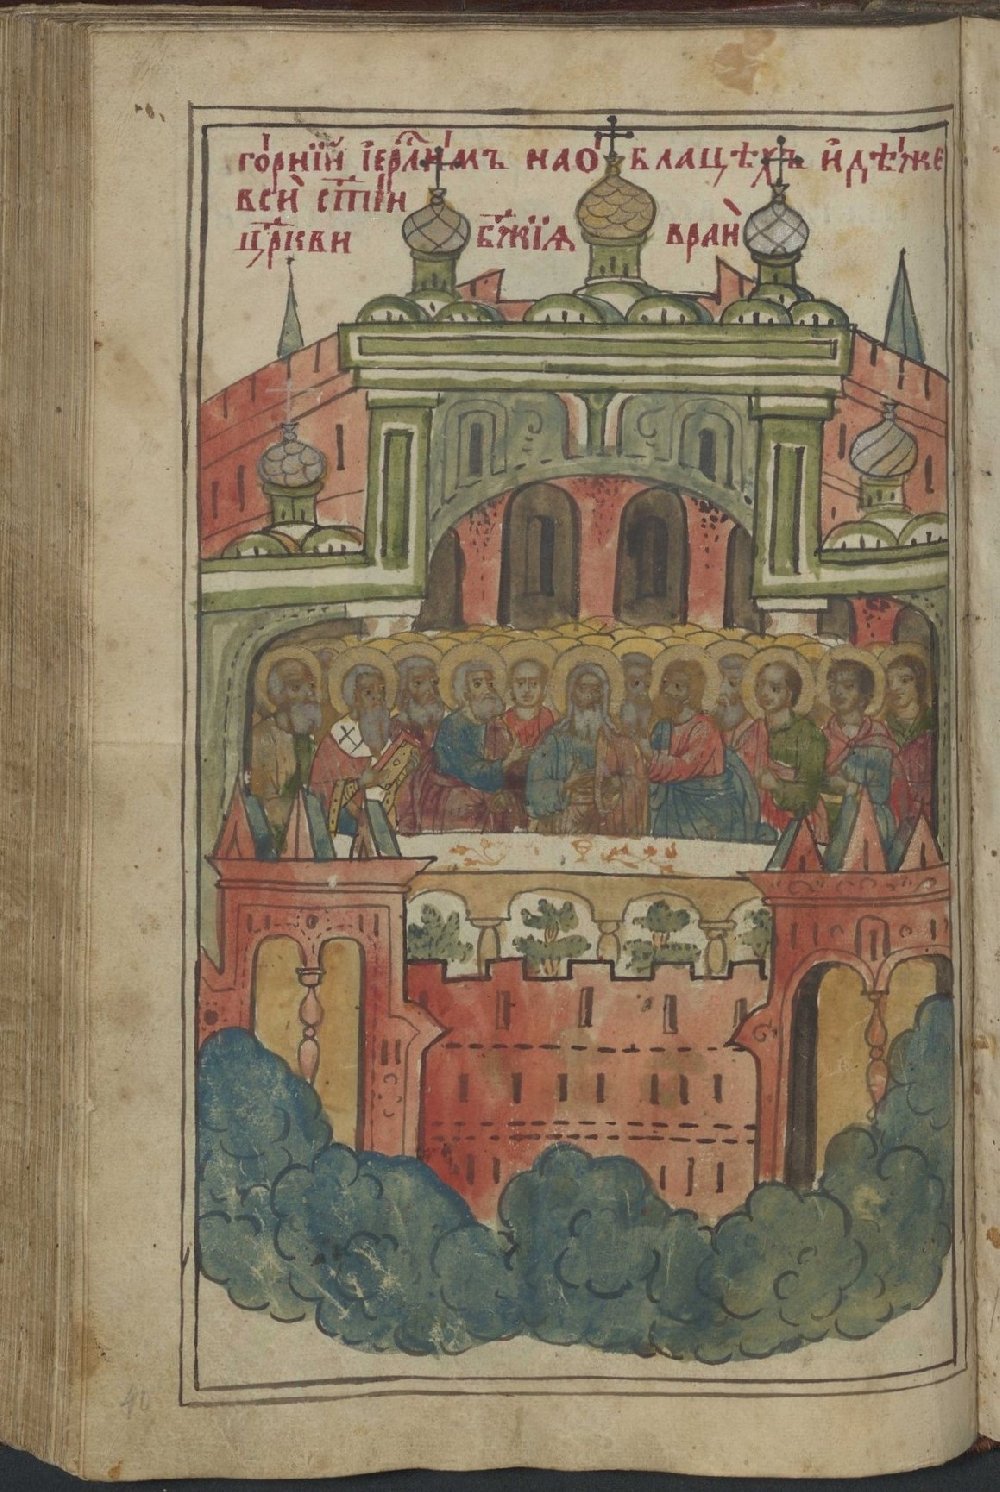 го́рнїй і҆ерⷭ҇ли́мъ на о́блацѣхъ и҆дѣ́же
вси̑ ст҃і́и
цр҃кви бж҃їѧ в раи̑